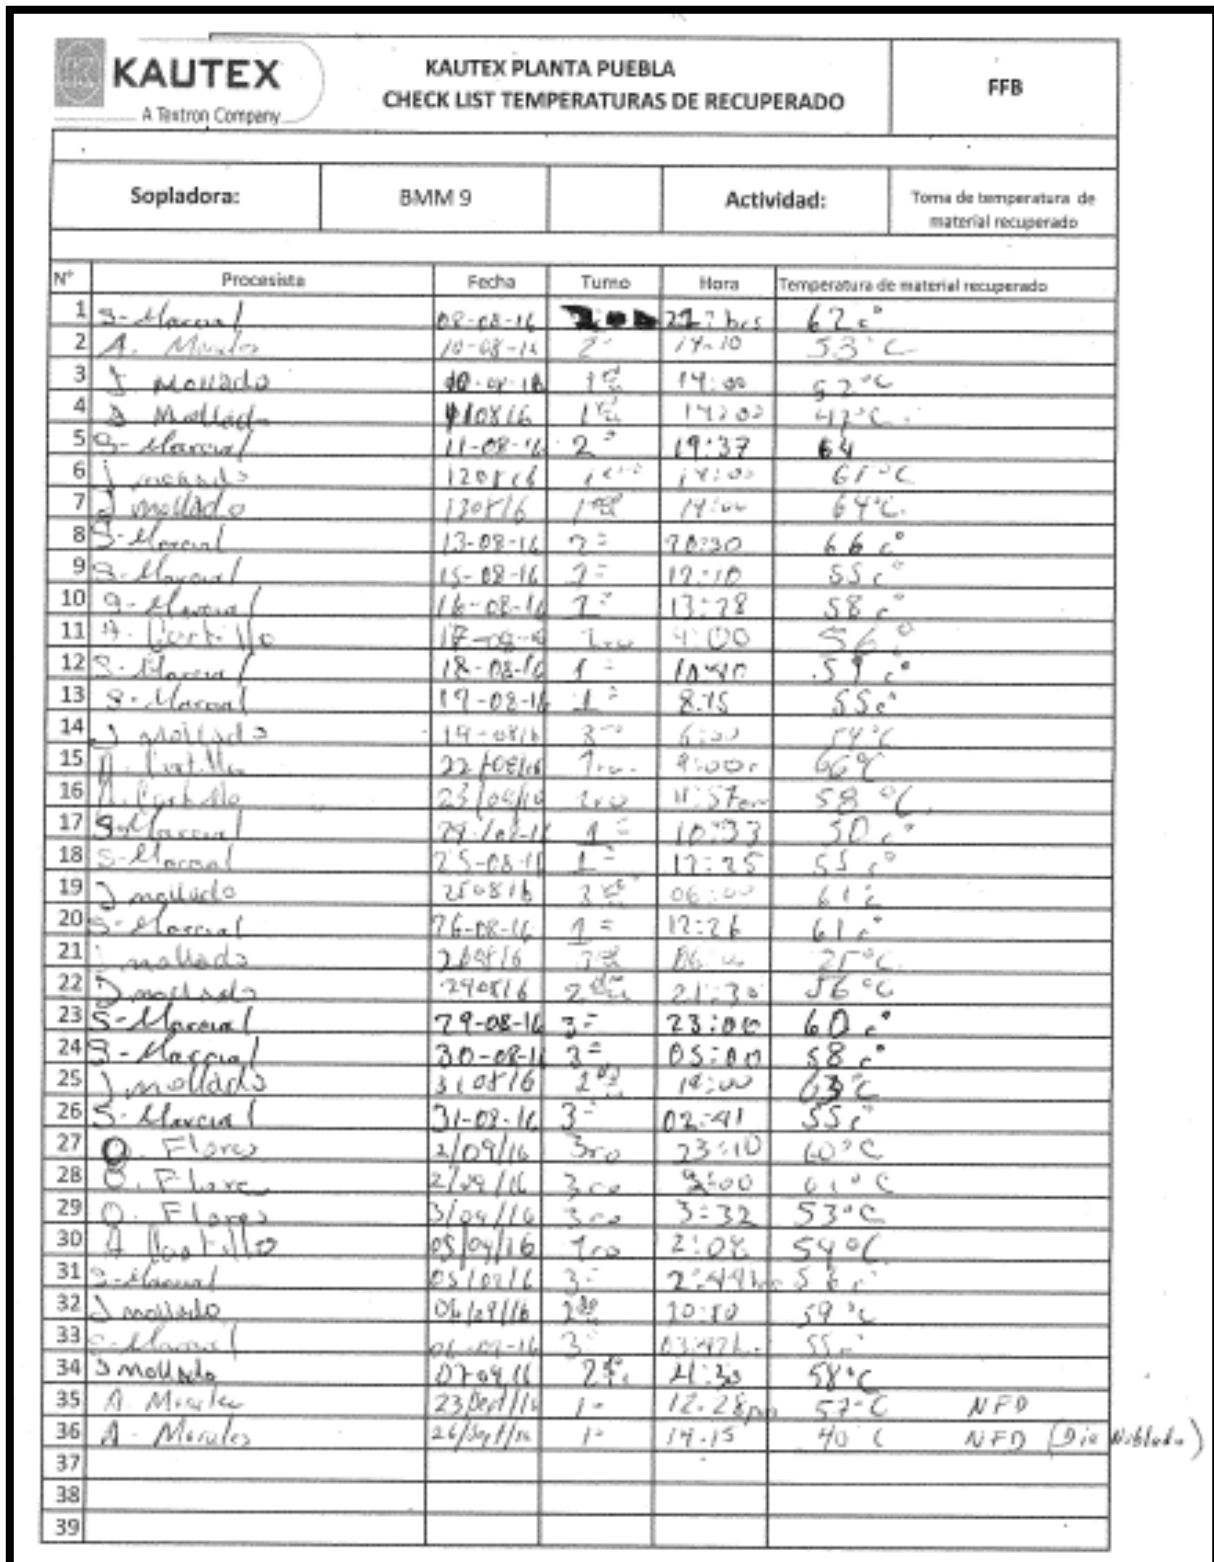 KAUTEX
A Textron Company
KAUTEX PLANTA PUEBLA
CHECK LIST TEMPERATURAS DE RECUPERADO
FFB
Sopladora: BMM 9 Actividad: Toma de temperatura de material recuperado
N° Procesista Fecha Turno Hora Temperatura de material recuperado
1 S-Marcial 08-08-16 hrs 62 c°
2 A. Morales 10-08-16 2° 14-10 53°C
3 J Mollado 10-08-16 1 14:00 52°C
4 J Mollado 110816 1 14:00 °C
5 S-Marcial 11-08-16 2° 19:37 64
6 J mollado 120816 14:00 61°C
7 J mollado 130816 1 14:00 64°C
8 S-Marcial 13-08-16 2° 20:30 66 c°
9 S-Marcial 15-08-16 12:10 55 c°
10 S-Marcial 16-08-16 13:28 58 c°
11 A. Castillo 17-08-16 1ro :00 56°
12 S-Marcial 18-08-16 1° 10:40 59 c°
13 S-Marcial 19-08-16 1° 8:15 55c°
14 J mollado 19-0816 3 6:00 54°C
15 A. Castillo 22/08/16 1ro. 9:00 66°C
16 A. Castillo 23/08/16 1ro 11:57 58 °C
17 S-Marcial 1° 10:33 50 c°
18 S-Marcial 25-08-16 1° 12:25 55 c°
19 J mollado 250816 3 06:00 61°c
20 S-Marcial 26-08-16 1° 12:26 61 c°
21 J mollado 3 06:00 °C
22 J mollado 290816 2 21:30 56 °C
23 S-Marcial 29-08-16 3° 23:00 60 c°
24 S-Marcial 30-08-16 3° 05:00 58 c°
25 J mollado 310816 2 63°C
26 S-Marcial 31-08-16 3° 02:41 55c°
27 O. Flores 2/09/16 3ro 23:10 60°C
28 O. Flore 2/09/16 3ro :00 61°C
29 O. Flores 3/09/16 3ro 3:32 53°C
30 A Castillo 05/09/16 1ro 2:08 54°C
31 S-Marcial 3° 2:44hr 56 c°
32 J mollado 06/09/16 2do 59 °C
33 S-Marcial 06-09-16 3° 03:42h. 55
34 J Mollado 070916 2 :30 58°C
35 A. Morales 23/Sept/16 1° 12:28pm 57°C NFD
36 A. Morales 26/Sept/16 1° 14-15 40 C NFD (Dia Nublado)
37
38
39